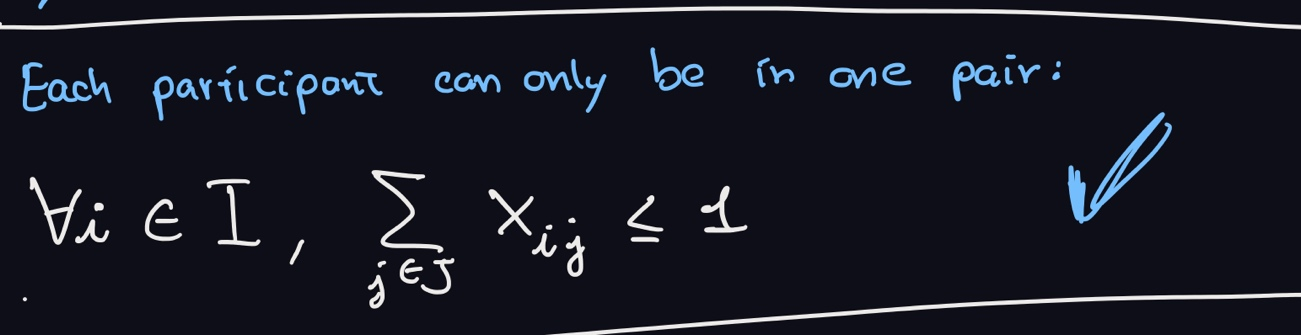 Each participant can only be in one pair:
∀i ∈ I, ∑_{j ∈ J} X_{ij} ≤ 1